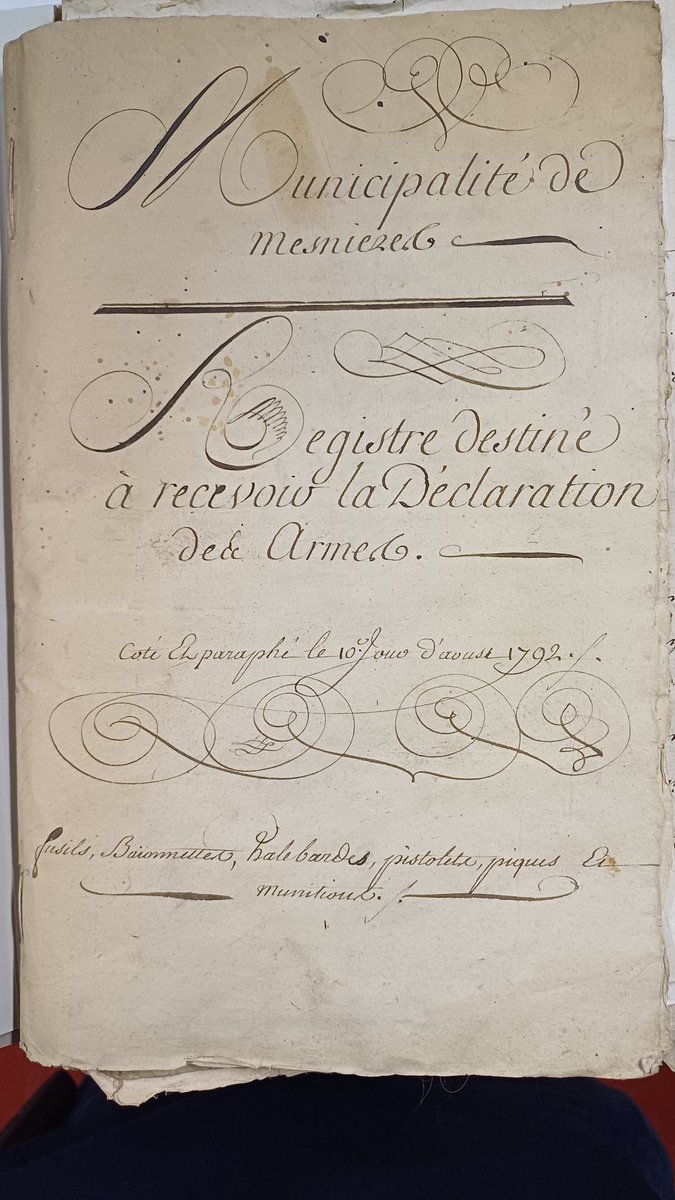 Municipalité de
Mesnieres
Registre destiné
à recevoir la Déclaration
des Armes.
Coté Et paraphé le 10.e Jour d'aoust 1792.
fusils, Baïonnettes, halebardes, pistolets, piques Et
munitions.